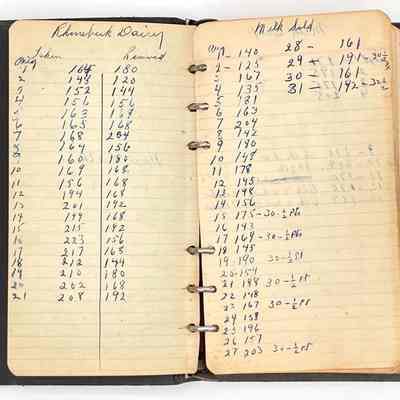 Rhinebeck Dairy
Aug Taken Received
1 164 180
2 148 120
3 152 144
4 156 156
5 163 168
6 165 168
7 168 204
8 164 156
9 160 180
10 169 168
11 156 168
12 194 168
13 201 192
14 199 168
15 215 182
16 223 156
17 217 168
18 212 144
19 210 180
20 202 168
21 208 192
Milk Sold
Aug 1 - 140 28 - 161
2 - 125 29 - 191 - 30 ½
3 167 30 - 161
4 135 31 - 192 - 30 ½
5 131
6 163
7 204
8 142
9 180
10 148
11 178
12 145
13 148
14 156
15 175 - 30 - ½ Pts
16 143
17 169 - 30 - ½ Pts
18 145
19 190 30 - ½ Pt
20 - 154
21 188 30 - ½ pt
22 148
23 167 30 - ½ Pt
24 138
25 196
26 157
27 203 30 - ½ pt